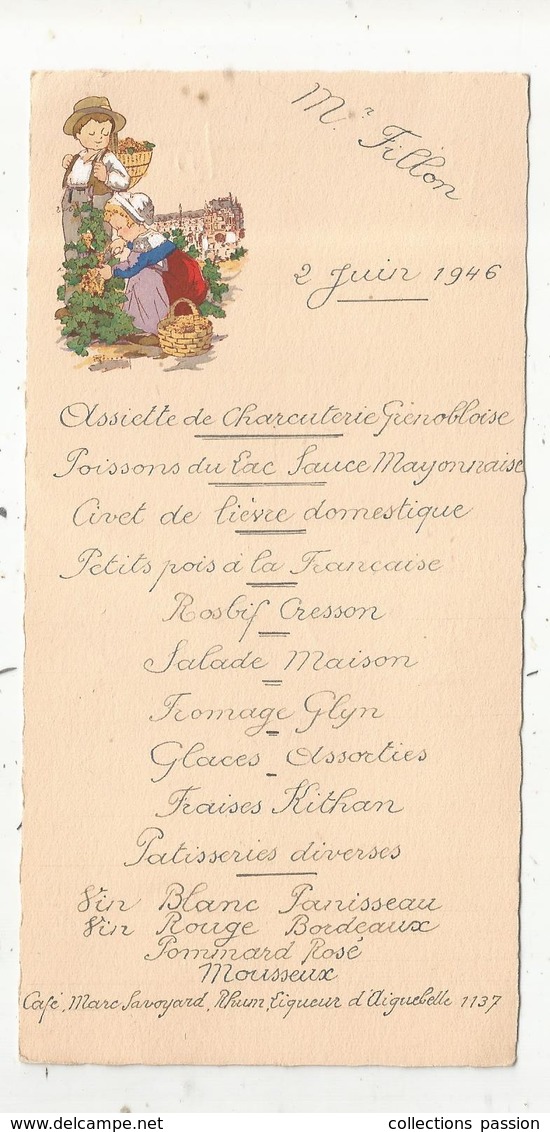 Mr. Fillon
2 Juin 1946
Assiette de Charcuterie Grenobloise
Poissons du Lac Sauce Mayonnaise
Civet de lièvre domestique
Petits pois à la Française
Rosbif Cresson
Salade Maison
Fromage Glyn
Glaces Assorties
Fraises Kithan
Patisseries diverses
Vin Blanc Panisseau
Vin Rouge Bordeaux
Pommard Rosé
Mousseux
Café, Marc Savoyard, Rhum, Liqueur d'Aiguebelle 1137
collections passion